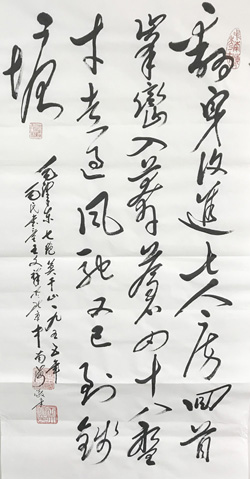 翻身復進七人房回首
峯巒入莽蒼四十八盤
才走過風馳又已到錢
塘
毛澤東七絕莫干山一九五五年